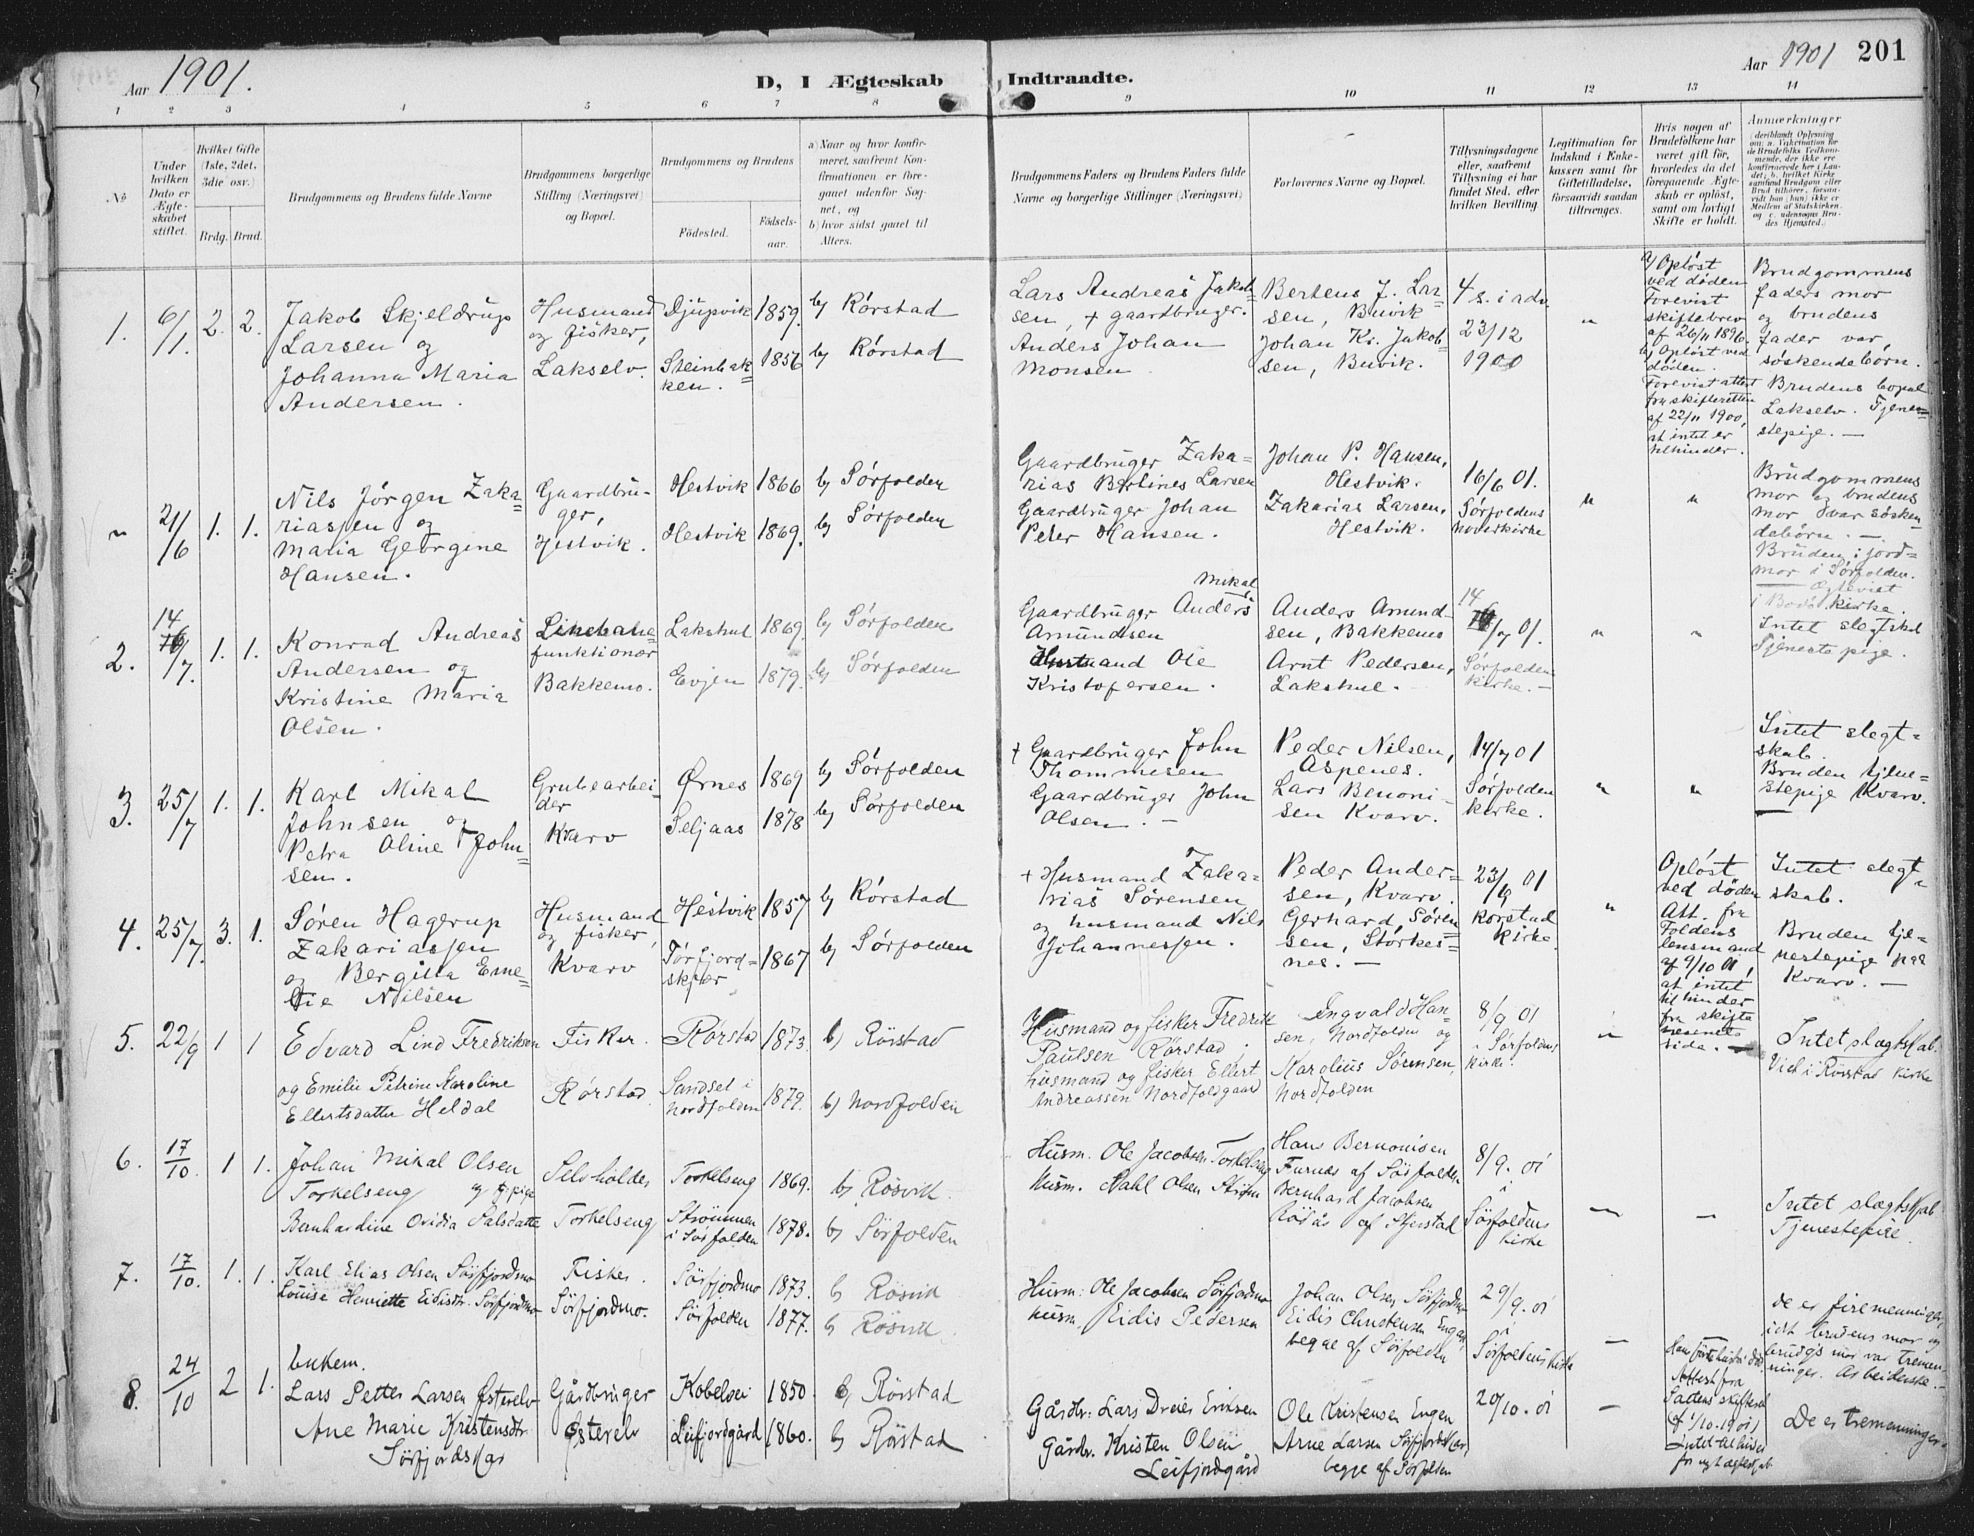 Aar 1901.
D, 1 Ægteskab Indtraadte.
Aar 1901 201
1 2 3 4 5 6 7 8 9 10 11 12 13 14
No
Under hvilken Dato er Ægteskabet stiftet.
Hvilket Gifte (1ste, 2det, 3die osv.)
Brdg. Brud.
Brudgommens og Brudens fulde Navne
Brudgommens borgerlige Stilling (Næringsvei) og Bopæl.
Brudgommens og Brudens
Fødested.
Fødselsaar.
a) Naar og hvor konfirmeret, saafremt Konfirmationen er foregaaet udenfor Sognet, og
b) hvor sidst gaaet til Alters.
Brudgommens Faders og Brudens Faders fulde Navne og borgerlige Stillinger (Næringsvei)
Forlovernes Navne og Bopæl.
Tillysningsdagene eller, saafremt Tillysning ei har fundet Sted, efter hvilken Bevilling
Legitimation for Indskud i Enkekassen samt for Giftetilladelse, forsaavidt saadan tiltrænges.
Hvis nogen af Brudefolkene har været gift før, hvorledes da det foregaaende Ægteskab er opløst, samt om lovligt Skifte er holdt.
Anmærkninger
1. 6/1. 2. 2.
Jakob Skjeldrup
Larsen og
Johanna Maria
Andersen.
Husmand
og fisker,
Lakselv.
Djupvik 1859. b) Rørstad
Steinbakken. 1856 b) Rørstad
Lars Andreas Jakobsen, + gaardbruger.
Anders Johan
Monsen
Bertens J. Larsen, Buvik
Johan Kr. Jakobsen, Buvik.
4 s. i adv.
23/12
1900
"
a) Opløst
ved døden
Forevist
skiftebrev
af 26/11 1896.
b) Opløst ved
døden.
Forevist attest
fra skifteretten
af 22/11 1900,
at intet er
tilhinder.
Brudgommens
faders mor
og brudens
fader var
søskendebørn.
Brudens bopæl
Lakselv. Tjenestepige.
" 21/6 1. 1.
Nils Jørgen Zakariassen og
Maria Georgine
Hansen.
Gaardbruger,
Hestvik.
Hestvik 1866 b) Sørfolden
Hestvik 1869. b) Sørfolden
Gaardbruger Zakarias Larsen
Gaardbruger Johan
Peter Hansen.
Johan P. Hansen,
Hestvik.
Zakarias Larsen,
Hestvik.
16/6 01.
Sørfoldens
hovedkirke
" "
Brudgommens
mor og brudens
mor var søskendebørn. —
Bruden: jordmor i Sørfolden.
Ægteviet
i Bodø kirke.
2. 14/7. 1. 1.
Konrad Andreas
Andersen og
Kristine Maria
Olsen.
Linebanefunktionær
Bakkemo.
Lakshul 1869. b) Sørfolden
Evjen 1879. b) Sørfolden
Mikal
Gaardbruger Anders
Amundsen
Husmand Ole
Kristofersen.
Anders Amundsen, Bakkemo
Arnt Pedersen,
Lakshul.
14/7 01.
Sørfolden
kirke. —
" "
Intet slegtskab
Tjenestepige.
3. 25/7 1. 1.
Karl Mikal
Johnsen og
Petra Oline Johnsen.
Grubearbeider
Kvarv
Ørnes 1869 b) Sørfolden
Seljaas 1878 b) Sørfolden
+ Gaardbruger John
Thommesen
Gaardbruger John
Olsen. —
Peder Nilsen,
Aspenes.
Lars Benonisen Kvarv.
14/7 01
Sørfolden
kirke.
" "
Intet slegtskab.
Bruden tjenestepige Kvarv.
4. 25/7. 3. 1.
Søren Hagerup
Zakariassen
og Bergitta Emelie Nilsen
Husmand
og fisker,
Kvarv
Hestvik 1857 b) Rørstad
Tørfjordskjær 1867 b) Sørfolden
+ Husmand Zakarias Sørensen
og husmand Nils
Johannessen.
Peder Andersen, Kvarv.
Gerhard Sørensen, Størkesnes. —
23/9 01
Rørstad
kirke.
"
Opløst
ved døden
Att. fra
Foldens
lensmand
af 9/10 01,
at intet
til hinder
fra skiftevæsenets
side. —
Intet slegtskab.
Bruden tjenestepige paa
Kvarv. —
5. 22/9 1 1
Edvard Lind Fredriksen
og Emilie Petrine Karoline
Ellertsdatter Heldal
Fisker.
Rørstad
Rørstad 1873 b) Rørstad
Sandset i
Nordfolden 1879. b) Nordfolden
Husmand og fisker Fredrik
Paulsen Rørstad.
husmand og fisker Ellert
Andreassen Nordfoldgaard
Ingvald Hansen, Nordfolden og
Karolius Sørensen,
Nordfolden
8/9 01
i Sørfoldens
Kirke.
"
Intet slægtskab.
Viet i Rørstad Kirke
6. 17/10. 1 1.
Johan Mikal Olsen
Torkelseng og pige
Bernhardine Ovidia Dalsdatter
Selvholder
Torkelseng
Torkelseng 1869. b) Røsvik
Strømmen
i Sørfolden 1878. b) Sørfolden
Husm. Ole Jacobsen Torkelseng
Husm. Dahl Olsen Strømen
Hans Bernonisen
Furnes af Sørfolden
Bernhard Jacobsen
Røsås af Skjerstad
8/9. 01
i
Sørfoldens
kirke
— —
Intet slægtskab.
Tjenestepige.
7. 17/10. 1. 1.
Karl Elias Olsen Sørfjordmo
Louise Henriette Eidisdtr. Sørfjordmo
Fisker.
Sørfjordmo.
Sørfjordmo 1873. b) Røsvik
Sørfolden 1877. b) Røsvik.
Husm: Ole Jacobsen Sørfjordmo
husm. Eidis Pedersen
Johan Olsen Sørfjordmo
Eidis Christensen Engan
begge af Sørfolden
29/9. 01
i
Sørfoldens kirke
—
De er firemenninger,
idt brudens mor og
brudgs mor var tremenninger. Arbeiderske. —
8. 24/10 2 1.
Enkem.
Lars Petter Larsen Østerelv
Ane Marie Kristensdtr.
Sørfjordskar
Gårdbruger
Østerelv
Kobelvei 1850. b) Rørstad
Leifjordgård 1860. b) Rørstad
Gårdbr: Lars Dreier Eriksen
Gårdbr. Kristen Olsen
Leifjordgård
Ole Kristensen Engen
Arne Larsen Sørfjordskar
begge af Sørfolden
20/10. 01
—
Attest fra
Saltens skifteret
af 1/10. 1901
intet til hinder
for nyt ægteskab
De er tremenninger.